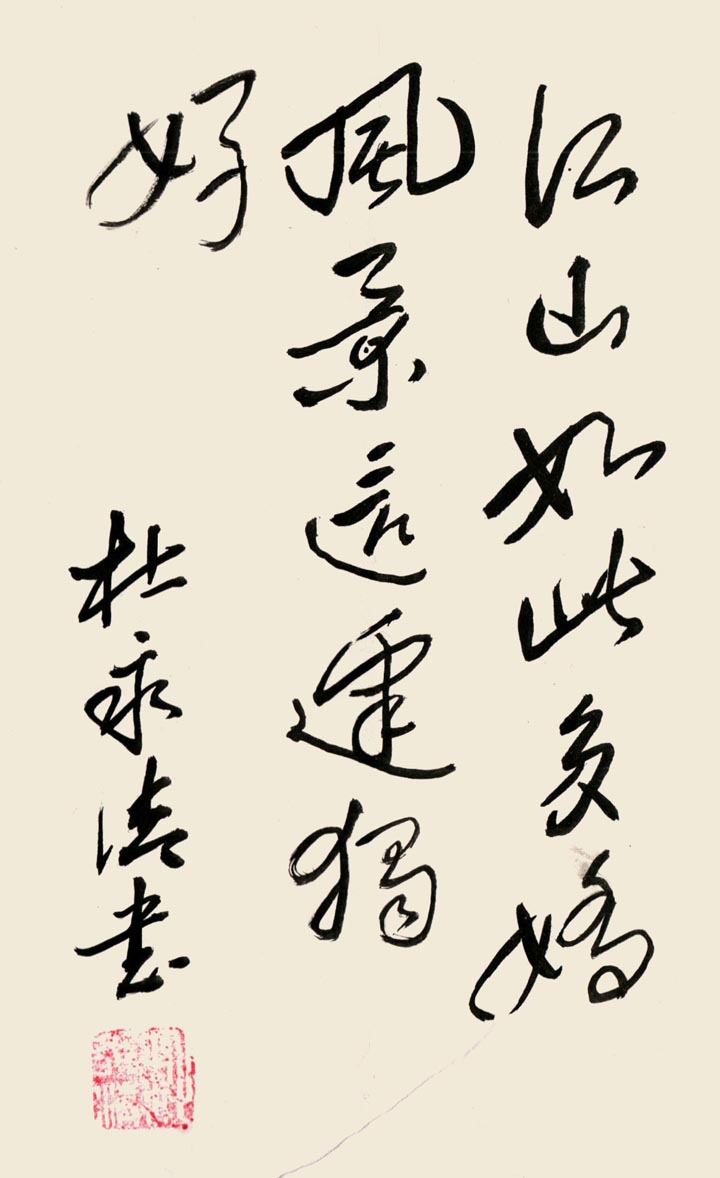 江山如此多嬌
風景這邊獨
好
杜永書